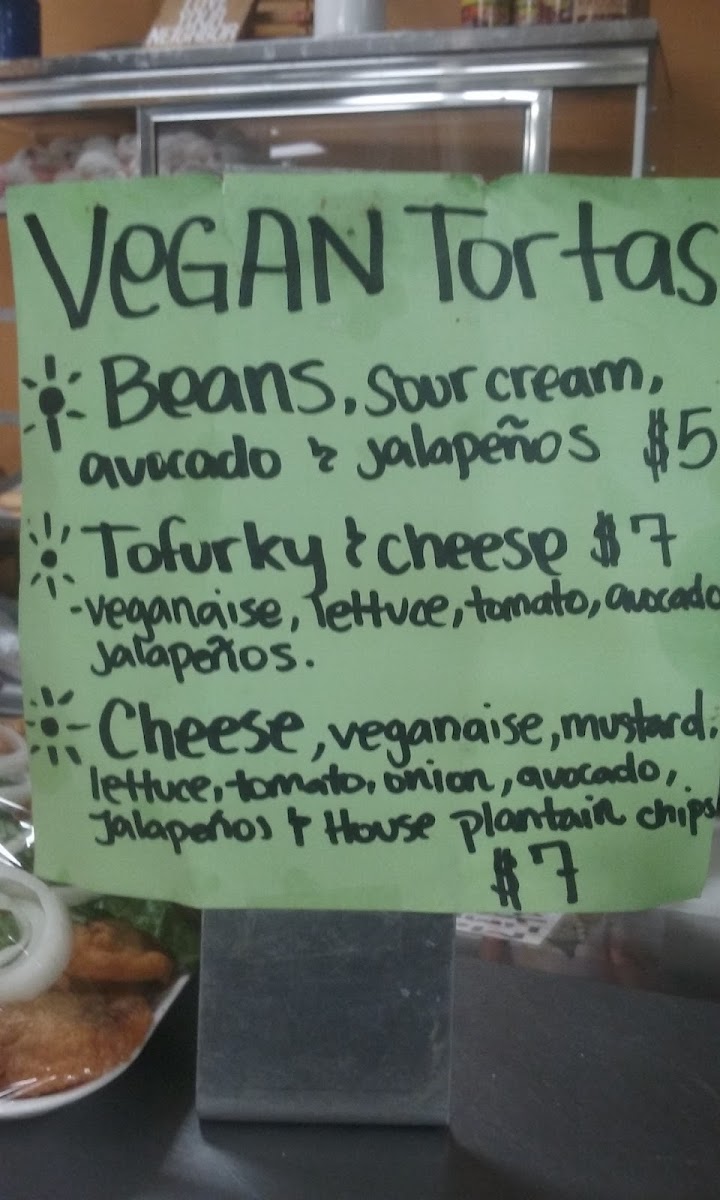 LOVE
YOUR
NEIGHBOR
VEGAN Tortas
Beans, sour cream,
avocado & jalapeños $5
Tofurky & cheese $7
-veganaise, lettuce, tomato, avocado
jalapeños.
Cheese, veganaise, mustard,
lettuce, tomato, onion, avocado,
jalapeños & House plantain chips
$7